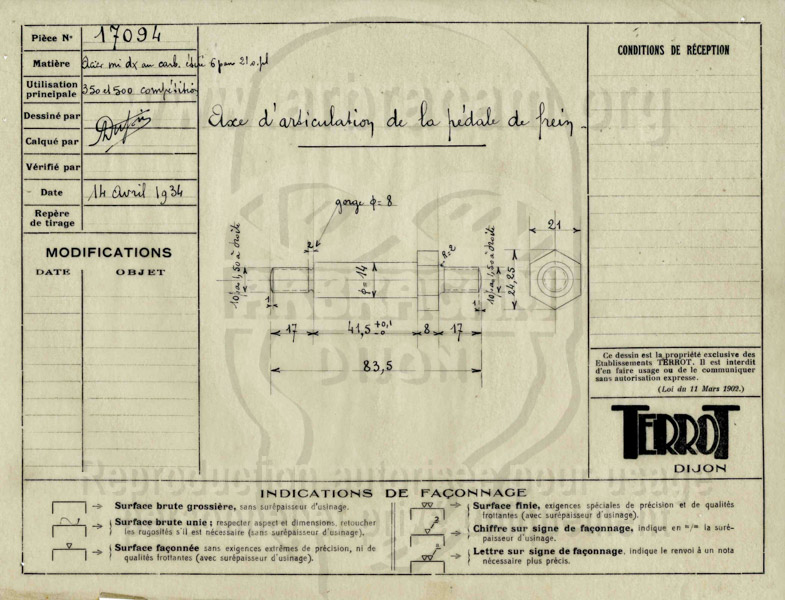 Pièce N° 17094
Matière Acier mi dx au carb. étiré 6 pans 21 s. pl
Utilisation
principale 350 et 500 compétition
Dessiné par
Calqué par
Vérifié par
Date 14 Avril 1934
Repère
de tirage
MODIFICATIONS
DATE OBJET
www. .org
Axe d'articulation de la pédale de frein
gorge φ = 8
2
10 pas 1,50 à droite
φ = 14
R=2
10 pas 1,50 à droite
24,25
21
1
1
17 41,5 +0,1 -0 8 17
83,5
DIJON
CONDITIONS DE RÉCEPTION
Ce dessin est la propriété exclusive des
Etablissements TERROT. Il est interdit
d'en faire usage ou de le communiquer
sans autorisation expresse.
(Loi du 11 Mars 1902.)
TERROT
DIJON
Reproduction autorisée pour usage
INDICATIONS DE FAÇONNAGE
Surface brute grossière, sans surépaisseur d'usinage.
Surface brute unie ; respecter aspect et dimensions, retoucher
les rugosités s'il est nécessaire (sans surépaisseur d'usinage).
Surface façonnée sans exigences extrêmes de précision, ni de
qualités frottantes (avec surépaisseur d'usinage).
Surface finie, exigences spéciales de précision et de qualités
frottantes (avec surépaisseur d'usinage).
Chiffre sur signe de façonnage, indique en m/m la suré-
paisseur d'usinage.
Lettre sur signe de façonnage, indique le renvoi à un nota
nécessaire plus précis.